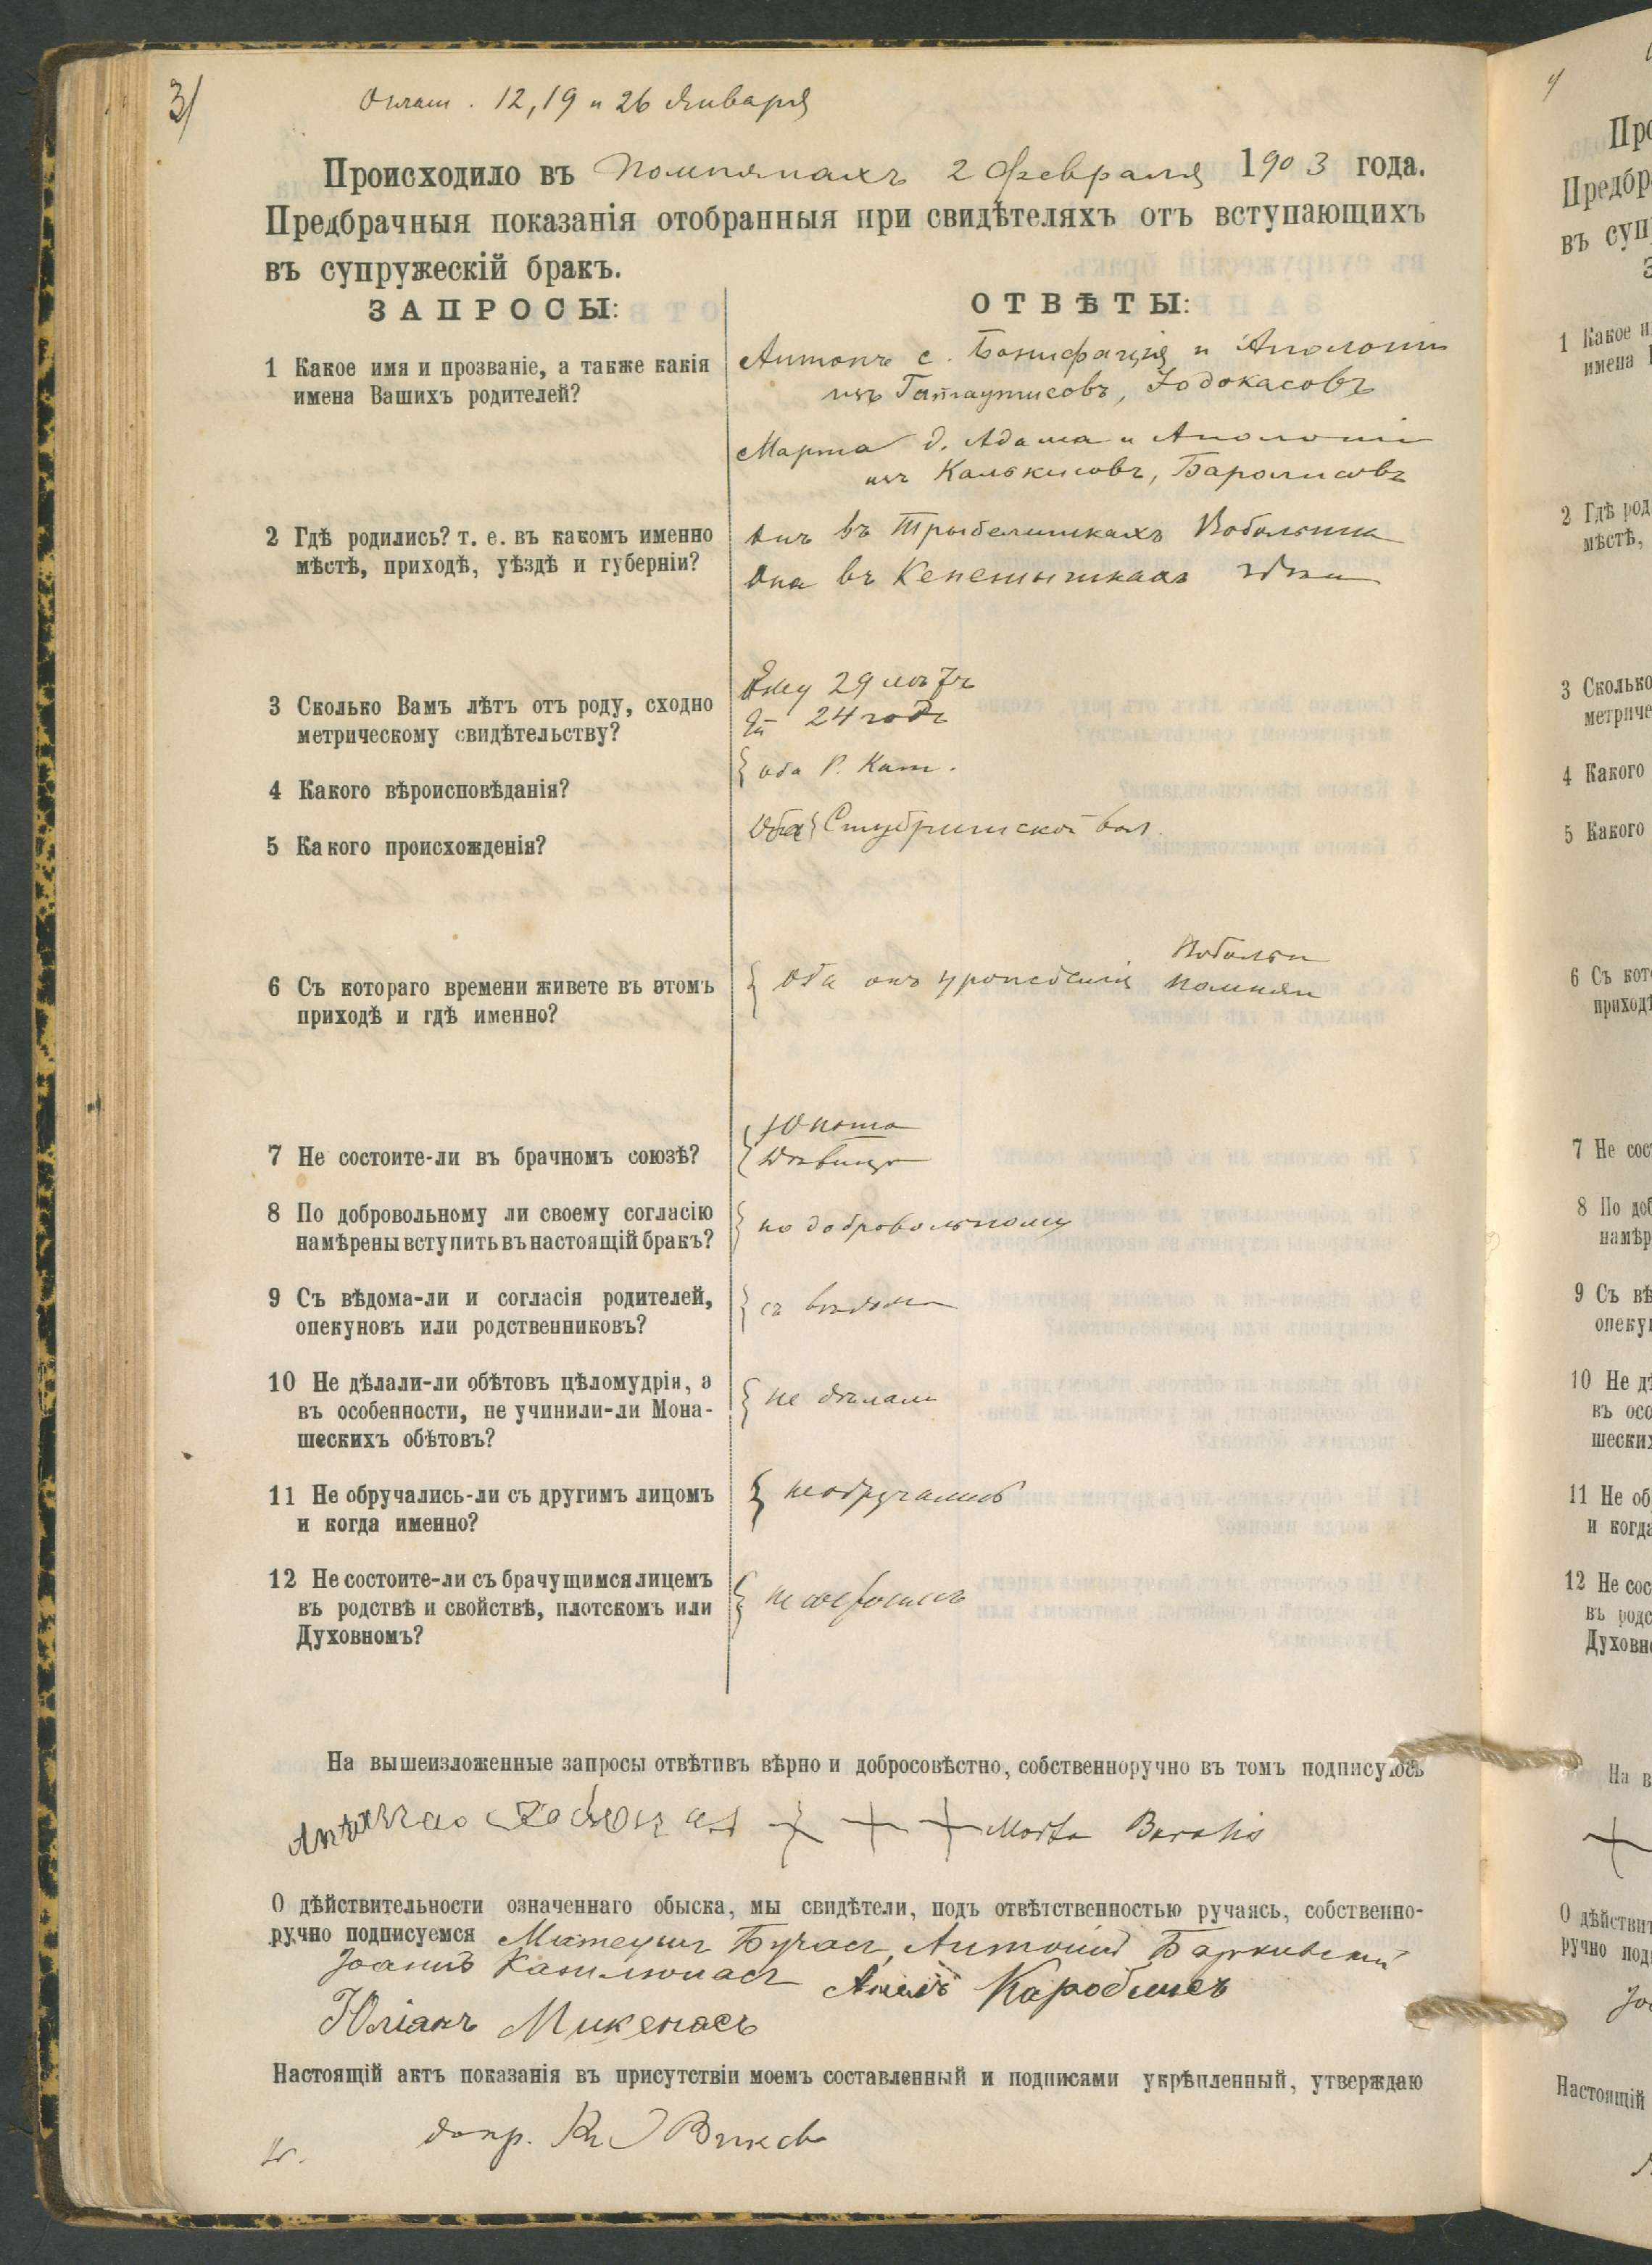 3/
Оглаш. 12, 19 и 26 Января
Происходило въ Помпянахъ 2 Февраля 1903 года.
Предбрачныя показанія отобранныя при свидѣтеляхъ отъ вступающихъ
въ супружескій бракъ.
ЗАПРОСЫ:
ОТВѢТЫ:
1 Какое имя и прозваніе, а также какія
имена Вашихъ родителей?
Антонъ с. Бонифація и Аполоніи
изъ Гатаутисовъ, Іодокасовъ
Марта д. Адама и Аполоніи
изъ Калькисовъ, Баролисовъ
2 Гдѣ родились? т. е. въ какомъ именно
мѣстѣ, приходѣ, уѣздѣ и губерніи?
Онъ въ Трыбелишкахъ Вобольник
Она въ
3 Сколько Вамъ лѣтъ отъ роду, сходно
метрическому свидѣтельству?
Ему 29 лѣтъ
Ей 24 года
4 Какого вѣроисповѣданія?
{ оба Р. Кат.
5 Какого происхожденія?
Оба { вол.
6 Съ котораго времени живете въ этомъ
приходѣ и гдѣ именно?
{ Оба отъ урожденія Вобольн
Помпян
7 Не состоите-ли въ брачномъ союзѣ?
{ Юноша
Дѣвица
8 По добровольному ли своему согласію
намѣрены вступить въ настоящій бракъ?
{ по добровольному
9 Съ вѣдома-ли и согласія родителей,
опекуновъ или родственниковъ?
{ съ вѣдома
10 Не дѣлали-ли обѣтовъ цѣломудрія, а
въ особенности, не учинили-ли Мона-
шескихъ обѣтовъ?
{ не дѣлали
11 Не обручались-ли съ другимъ лицомъ
и когда именно?
{ необручались
12 Не состоите-ли съ брачущимся лицемъ
въ родствѣ и свойствѣ, плотскомъ или
Духовномъ?
{ не состоимъ
На вышеизложенные запросы отвѣтивъ вѣрно и добросовѣстно, собственноручно въ томъ подписуюсь
+ + + Marta Barolis
О дѣйствительности означеннаго обыска, мы свидѣтели, подъ отвѣтственностью ручаясь, собственно-
ручно подписуемся Матеушъ Бучасъ, Антоній Барковскій
Іоаннъ Казилюнасъ
Юліанъ Микенасъ
Настоящій актъ показанія въ присутствіи моемъ составленный и подписями укрѣпленный, утверждаю